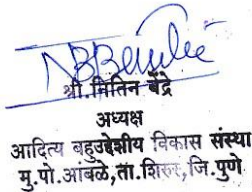 श्री.नितिन बेंद्रे
अध्यक्ष
आदित्य बहुउद्देशीय विकास संस्था
मु.पो.आंबळे,ता.शिरुर,जि.पुणे